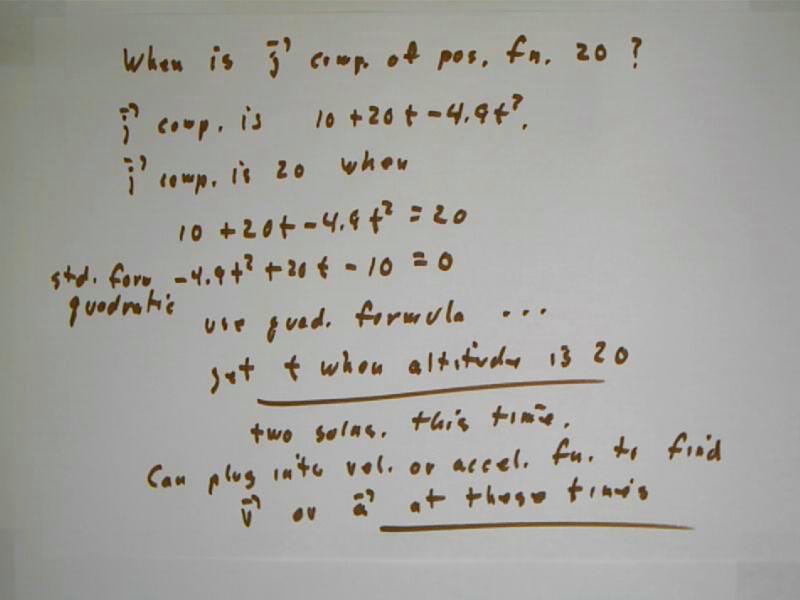 When is j⃗ comp. of pos. fn. 20 ?
j⃗ comp. is 10 + 20t - 4.9t².
j⃗ comp. is 20 when
10 + 20t - 4.9t² = 20
std. form -4.9t² + 20t - 10 = 0
quadratic
use quad. formula ...
get t when altitude is 20
two solns. this time.
Can plug into vel. or accel. fn. to find
v⃗ or a⃗ at these times